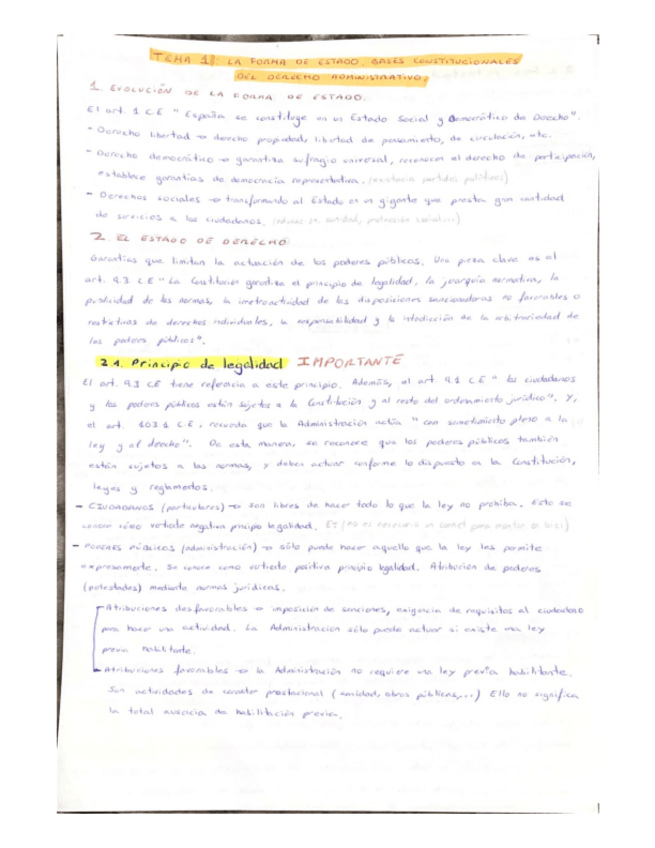 TEMA 1: LA FORMA DE ESTADO. BASES CONSTITUCIONALES
DEL DERECHO ADMINISTRATIVO.
1. EVOLUCIÓN DE LA FORMA DE ESTADO.
El art. 1 C.E " España se constituye en un Estado Social y Democrático de Derecho".
- Derecho libertad → derecho propiedad, libertad de pensamiento, de circulación, etc.
- Derecho democrático → garantiza sufragio universal, reconocen el derecho de participación,
establece garantías de democracia representativa. (existencia partidos políticos)
- Derechos sociales → transformando al Estado en un gigante que presta gran cantidad
de servicios a los ciudadanos. (educación, sanidad, protección social...)
2. EL ESTADO DE DERECHO
Garantías que limitan la actuación de los poderes públicos. Una pieza clave es el
art. 9.3 C.E " La Constitución garantiza el principio de legalidad, la jerarquía normativa, la
publicidad de las normas, la irretroactividad de las disposiciones sancionadoras no favorables o
restrictivas de derechos individuales, la responsabilidad y la interdicción de la arbitrariedad de
los poderes públicos".
2.1. Principio de legalidad IMPORTANTE
El art. 9.3 CE tiene referencia a este principio. Además, el art. 9.1 C.E " los ciudadanos
y los poderes públicos están sujetos a la Constitución y al resto del ordenamiento jurídico". Y,
el art. 103.1 C.E, recuerda que la Administración actúa " con sometimiento pleno a la
ley y al derecho". De esta manera, se reconoce que los poderes públicos también
están sujetos a las normas, y deben actuar conforme lo dispuesto en la Constitución,
leyes y reglamentos.
- CIUDADANOS (particulares) → son libres de hacer todo lo que la ley no prohíba. Esto se
conoce cómo vertiente negativa principio legalidad. EJ (no es necesario un carnet para montar en bici)
- PODERES PÚBLICOS (administración) → sólo puede hacer aquello que la ley les permite
expresamente. Se conoce como vertiente positiva principio legalidad. Atribución de poderes
(potestades) mediante normas jurídicas.
Atribuciones desfavorables → imposición de sanciones, exigencia de requisitos al ciudadano
para hacer una actividad. La Administración sólo puede actuar si existe una ley
previa habilitante.
Atribuciones favorables → la Administración no requiere una ley previa habilitante.
Son actividades de carácter prestacional (sanidad, obras públicas,...) Ello no significa
la total ausencia de habilitación previa.